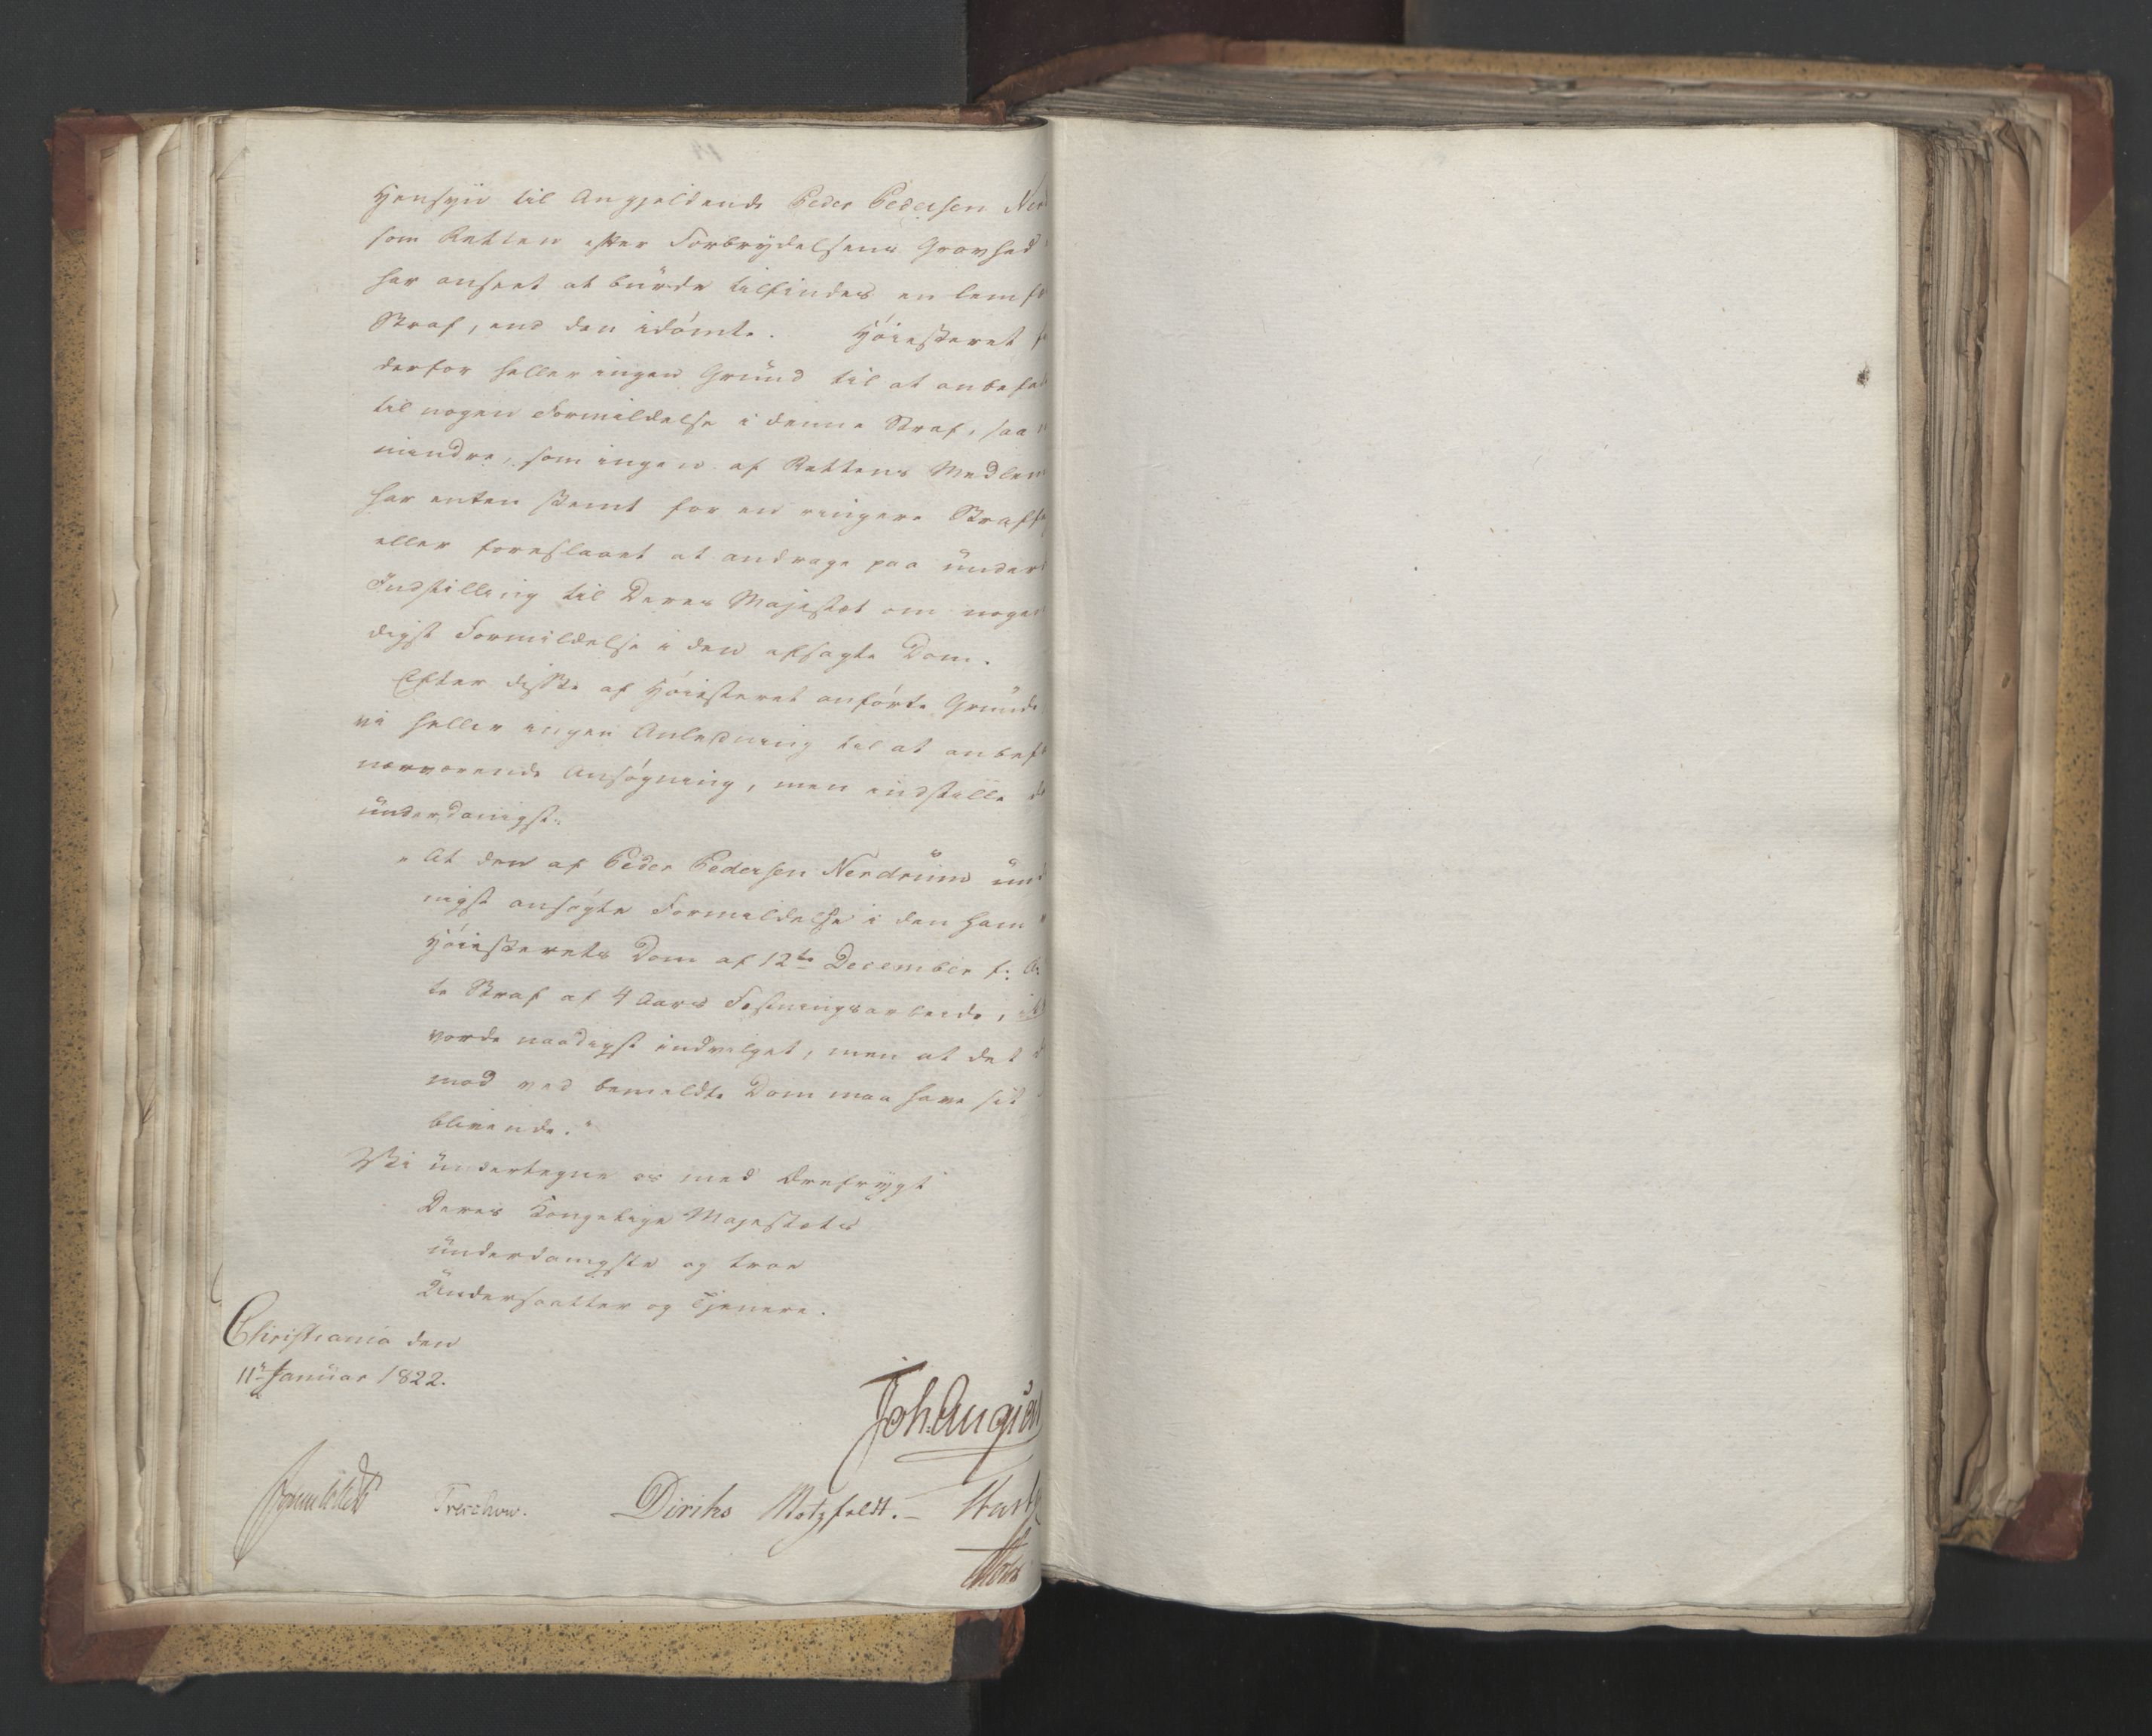 Hensyn til Angjeldende Peder Pedersen Ner
som Retten efter Forbrydelsens Grovhed
har anseet at burde tilfindes en lemf
Straf, end den idömte. Höiesteret f
derfor heller ingen Grund til at anbefal
til nogen Formildelse i denne Straf, saa
mindre, som ingen af Rettens Medlem
har enten stemt for en ringere Straf
eller foreslaaet at andrage paa under
Indstilling til Deres Majestæt om nogen
digst Formildelse i den afsagte Dom.
Efter disse af Höiesteret anförte Grunde
vi heller ingen Anledning til at anbef
nærværende Ansögning, men indstille de
underdanigst:
"At den af Peder Pedersen Nerdrum und
nigst ansögte Formildelse i den ham
Höiesterets Dom af 12te December f: A:
te Straf af 4 Aars Fæstningsarbeide, ik
vorde naadigst indvilget, men at det
mod ved bemeldte Dom maa have sit
blivende."
Vi undertegne os med Ærefrygt
Deres Kongelige Majestæts
underdanigste og troe
Undersaatter og Tjenere.
Christiania den
11te Januar 1822.
Joh. Aug. San
Sommerfeldt Treschow. Diriks Motzfeldt. –